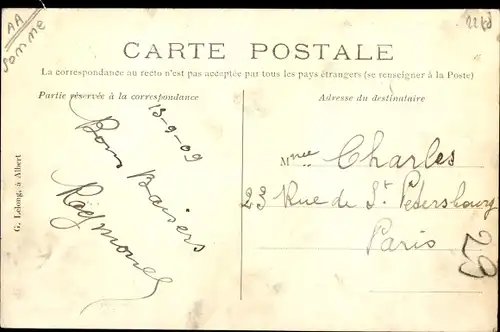 AA
Somme
CARTE POSTALE
La correspondance au recto n'est pas acceptée par tous les pays étrangers (se renseigner à la Poste)
Partie réservée à la correspondance
Adresse du destinataire
13-9-09
Bons Baisers
Raymonde
G. Lelong, à Albert
Mme Charles
23 Rue de St Pétersbourg
Paris
23